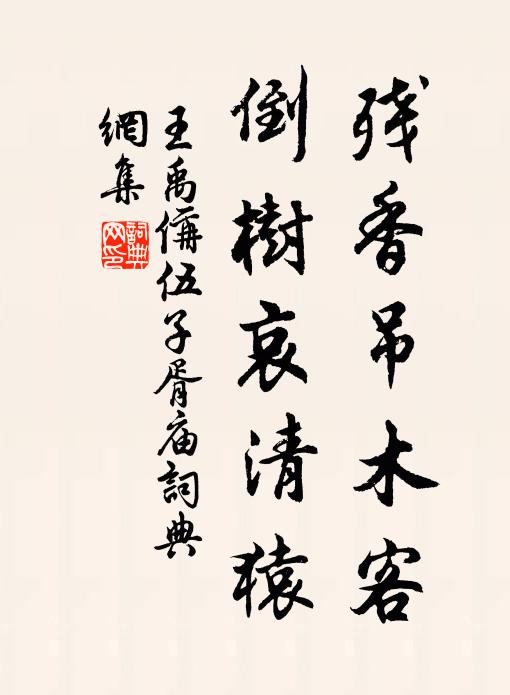 残香吊木客
倒樹哀清猿
王禹偁伍子胥庙詞典
網集
詞典
网印